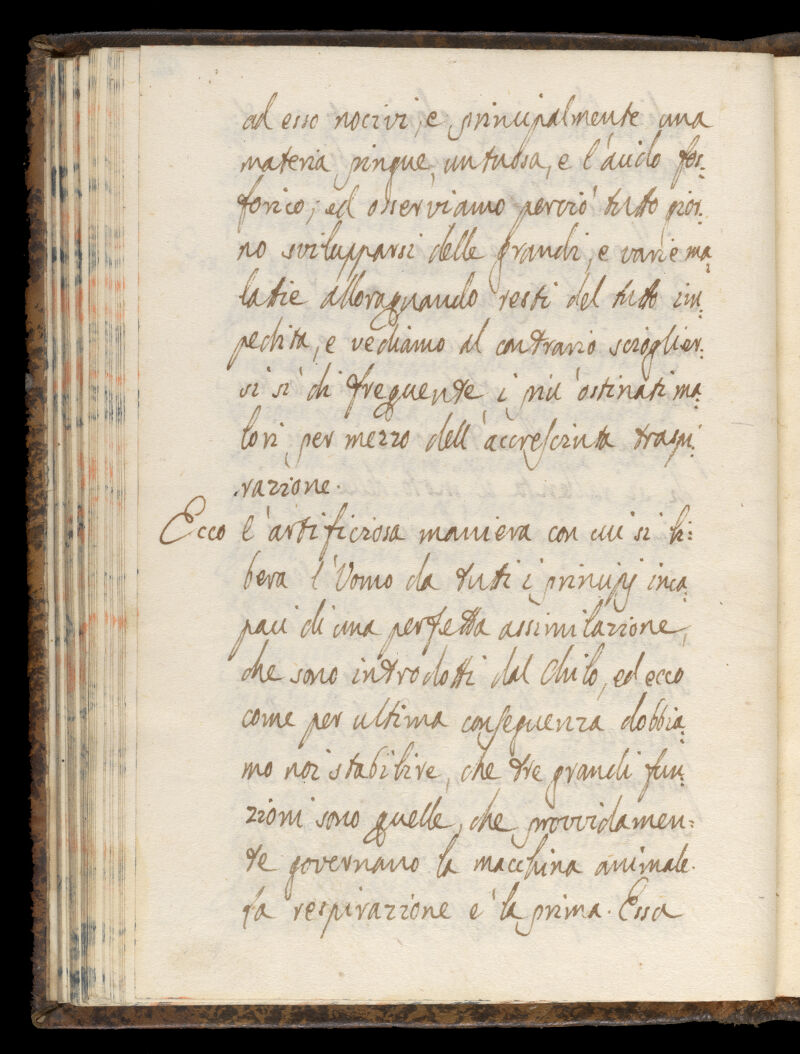 ad esso nocivi, e principalmente una
materia pingue, untuosa, e l'acido fos=
forico; ed osserviamo perciò tutto gior=
no svilupparsi delle grandi, e varie ma=
latie alloraquando resti del tutto im=
pedita, e vediamo al contrario scioglier=
si sì di frequente i più ostinati ma=
lori per mezzo dell'accresciuta traspi=
razione.
Ecco l'artificiosa maniera con cui si li=
bera l'Uomo da tutti i principj inca=
paci di una perfetta assimilazione,
che sono introdotti dal Chilo, ed ecco
come per ultima conseguenza dobbia=
mo noi stabilire, che tre grandi fun=
zioni sono quelle, che provvidamen=
te governano la macchina animale.
La respirazione è la prima. Essa